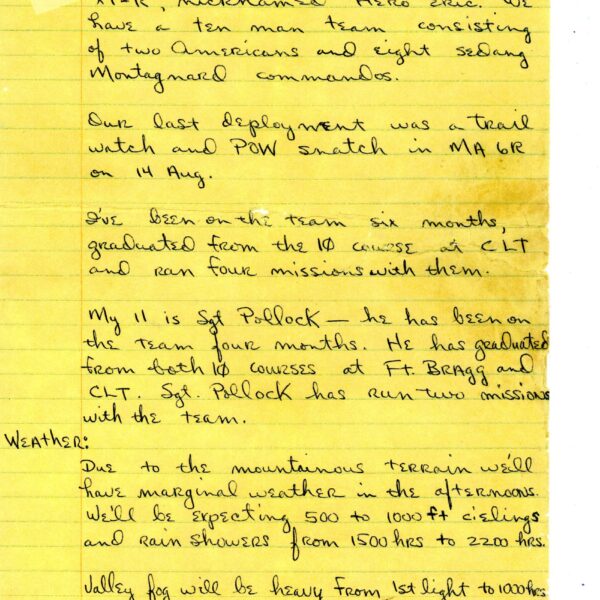 nicknamed Hero Eric. We
have a ten man team consisting
of two Americans and eight Sedang
Montagnard commandos.
Our last deployment was a trail
watch and POW snatch in MA 6R
on 14 Aug.
I've been on the team six months,
graduated from the 10 course at CLT
and ran four missions with them.
My 11 is Sgt Pollock — he has been on
the team four months. He has graduated
from both 10 courses at Ft. Bragg and
CLT. Sgt. Pollock has run two missions
with the team.
Weather:
Due to the mountainous terrain we'll
have marginal weather in the afternoons.
We'll be expecting 500 to 1000 ft cielings
and rain showers from 1500 hrs to 2200 hrs.
Valley fog will be heavy from 1st light to 1000 hrs